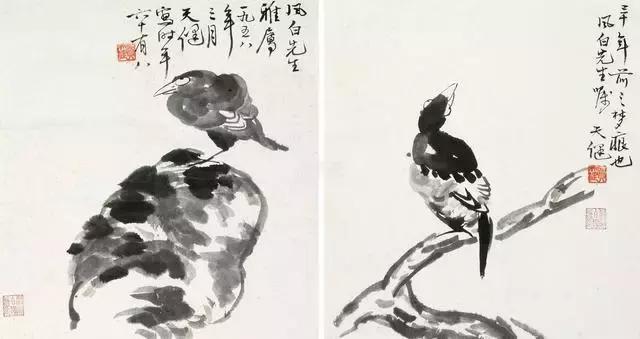 風白先生
雅屬
一九五八
年
三月
天健
寫時年
六十有八
三十年前之夢痕也
風白先生囑 天健